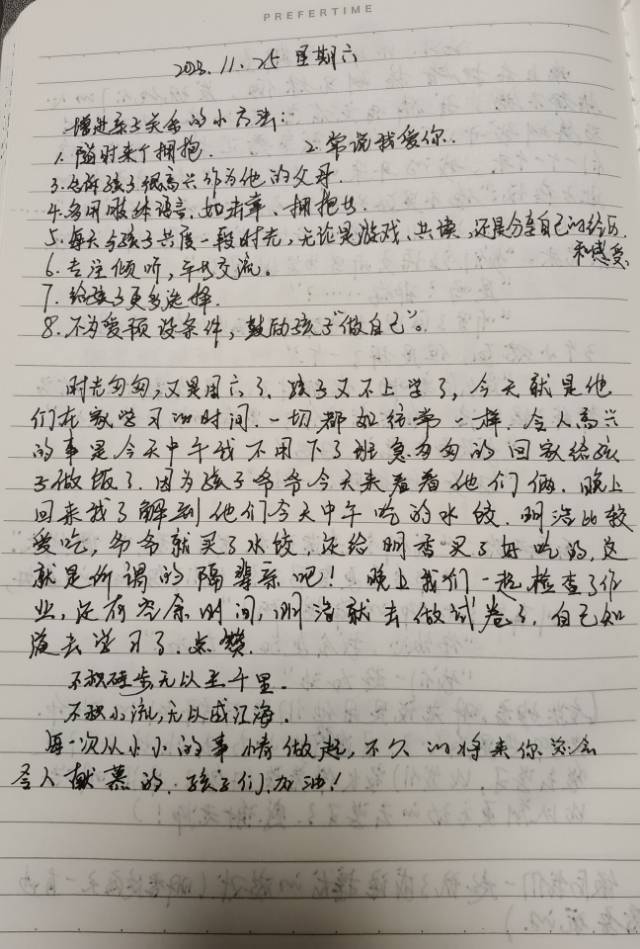 PREFERTIME
2023.11.25 星期六
增进亲子关系的小方法:
1. 随时来个拥抱. 2. 常说我爱你.
3. 告诉孩子很高兴作为他的父母.
4. 多用肢体语言, 如击掌、拥抱等.
5. 每天与孩子共度一段时光, 无论是游戏、共读, 还是分享自己的经历
和感受.
6. 专注倾听, 平等交流。
7. 给孩子更多选择.
8. 不为爱预设条件, 鼓励孩子“做自己”。
时光匆匆, 又是周六了. 孩子又不上学了, 今天就是他
们在家学习的时间. 一切都如往常一样. 令人高兴
的事是今天中午我不用下了班急匆匆的回家给孩
子做饭了. 因为孩子爷爷今天来看着他们俩. 晚上
回来我了解到他们今天中午吃的水饺. 明浩比较
爱吃, 爷爷就买了水饺, 还给明香买了好吃的, 这
就是所谓的隔辈亲吧! 晚上我们一起检查了作
业, 还有空余时间, 明浩就去做试卷了. 自己知
道去学习了. 点赞.
不积硅步, 无以至千里.
不积小流, 无以成江海.
每一次从小小的事情做起, 不久的将来你会
令人羡慕的. 孩子们, 加油!